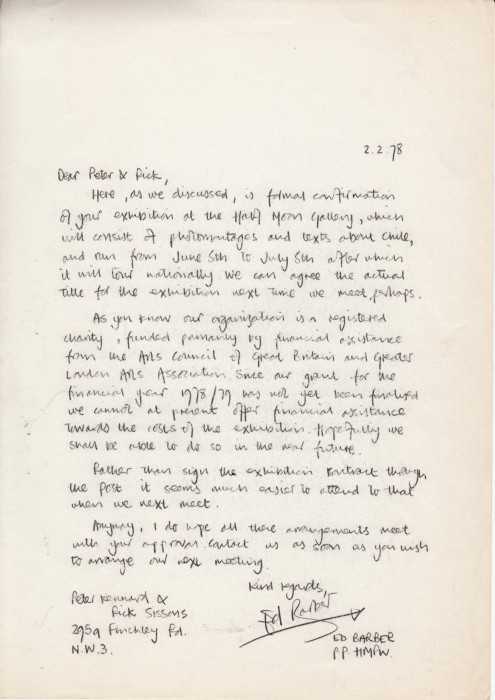 2.2.78
Dear Peter & Rick,
Here, as we discussed, is formal confirmation
of your exhibition at the Half Moon Gallery, which
will consist of photomontages and texts about Chile,
and run from June 5th to July 8th after which
it will tour nationally. We can agree the actual
title for the exhibition next time we meet, perhaps.
As you know our organization is a registered
charity, funded primarily by financial assistance
from the Arts Council of Great Britain and Greater
London Arts Association. Since our grant for the
financial year 1978/79 has not yet been finalised
we cannot at present offer financial assistance
towards the costs of the exhibition. Hopefully we
shall be able to do so in the near future.
Rather than sign the exhibition contract through
the post it seems much easier to attend to that
when we next meet.
Anyway, I do hope all these arrangements meet
with your approval. Contact us as soon as you wish
to arrange our next meeting.
Kind regards,
Ed Barber
Peter Kennard &
Rick Sissons
295a Finchley Rd.
N.W.3.
ED BARBER
P.P HMPW.